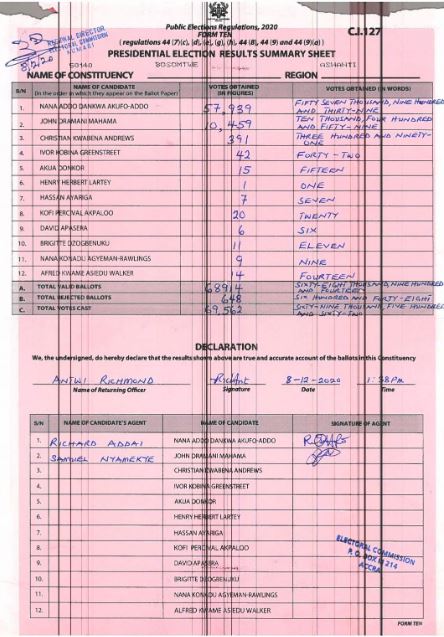 Public Elections Regulations, 2020
FORM TEN
C.I.127
(regulations 44 (7)(c), (d), (e), (g), (h), 44 (8), 44 (9) and 44 (9)(a))
REGIONAL DIRECTOR
ELECTORAL COMMISSION
KUMASI
8/12/20
PRESIDENTIAL ELECTION RESULTS SUMMARY SHEET
BOSOMTWE ASHANTI
NAME OF CONSTITUENCY REGION
S/N NAME OF CANDIDATE VOTES OBTAINED VOTES OBTAINED (IN WORDS)
(In the order in which they appear on the Ballot Paper) (IN FIGURES)
1. NANA ADDO DANKWA AKUFO-ADDO 57,939 FIFTY SEVEN THOUSAND, NINE HUNDRED
AND THIRTY-NINE
2. JOHN DRAMANI MAHAMA 10,459 TEN THOUSAND, FOUR HUNDRED
AND FIFTY-NINE
3. CHRISTIAN KWABENA ANDREWS 391 THREE HUNDRED AND NINETY-
ONE
4. IVOR KOBINA GREENSTREET 42 FORTY-TWO
5. AKUA DONKOR 15 FIFTEEN
6. HENRY HERBERT LARTEY 1 ONE
7. HASSAN AYARIGA 7 SEVEN
8. KOFI PERCIVAL AKPALOO 20 TWENTY
9. DAVID APASERA 6 SIX
10. BRIGITTE DZOGBENUKU 11 ELEVEN
11. NANA KONADU AGYEMAN-RAWLINGS 9 NINE
12. AFRED KWAME ASIEDU WALKER 14 FOURTEEN
A. TOTAL VALID BALLOTS 68914 SIXTY-EIGHT THOUSAND, NINE HUNDRED
AND FOURTEEN
B. TOTAL REJECTED BALLOTS 648 SIX HUNDRED AND FORTY-EIGHT
C. TOTAL VOTES CAST 69,562 SIXTY-NINE THOUSAND, FIVE HUNDRED
AND SIXTY-TWO
DECLARATION
We, the undersigned, do hereby declare that the results shown above are true and accurate account of the ballots in this Constituency
ANTWI RICHMOND 8-12-2020 1:38PM
Name of Returning Officer Signature Date Time
S/N NAME OF CANDIDATE'S AGENT NAME OF CANDIDATE SIGNATURE OF AGENT
1. RICHARD ADDAI NANA ADDO DANKWA AKUFO-ADDO
2. SAMUEL NYAMEKYE JOHN DRAMANI MAHAMA
3. CHRISTIAN KWABENA ANDREWS
4. IVOR KOBINA GREENSTREET
5. AKUA DONKOR
6. HENRY HERBERT LARTEY
7. HASSAN AYARIGA
8. KOFI PERCIVAL AKPALOO
9. DAVID APASERA
10. BRIGITTE DZOGBENUKU
11. NANA KONADU AGYEMAN-RAWLINGS
12. ALFRED KWAME ASIEDU WALKER
ELECTORAL COMMISSION
P. O. BOX M 214
ACCRA
FORM TEN